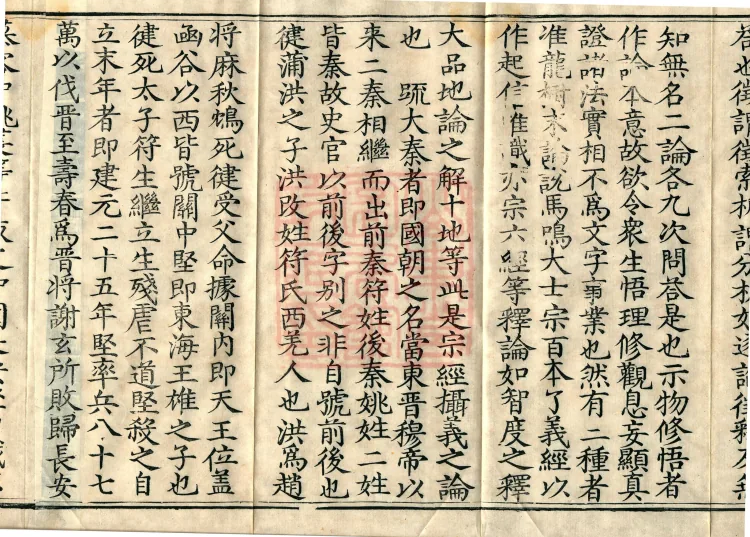 知無名二論各九次問荅是也示物修悟者
作論本意故欲令衆生悟理修觀息妄顯真
證諸法實相不爲文字事業也然有二種者
准龍樹本論說馬鳴大士宗百本了義經以
作起信唯識亦宗六經等釋論如智度之釋
大品地論之解十地等此是宗經攝義之論
也 䟽大秦者即國朝之名當東晉穆帝以
来二秦相繼而出前秦符姓後秦姚姓二姓
皆秦故史官以前後字別之非自號前後也
健蒲洪之子洪改姓符氏西羌人也洪爲趙
将麻秋鴆死健受父命據關内即天王位盖
凾谷以西皆號關中堅即東海王雄之子也
健死太子符生繼立生殘虐不道堅殺之自
立末年者即建元二十五年堅率兵八十七
萬以伐晉至壽春爲晉将謝玄所敗歸長安